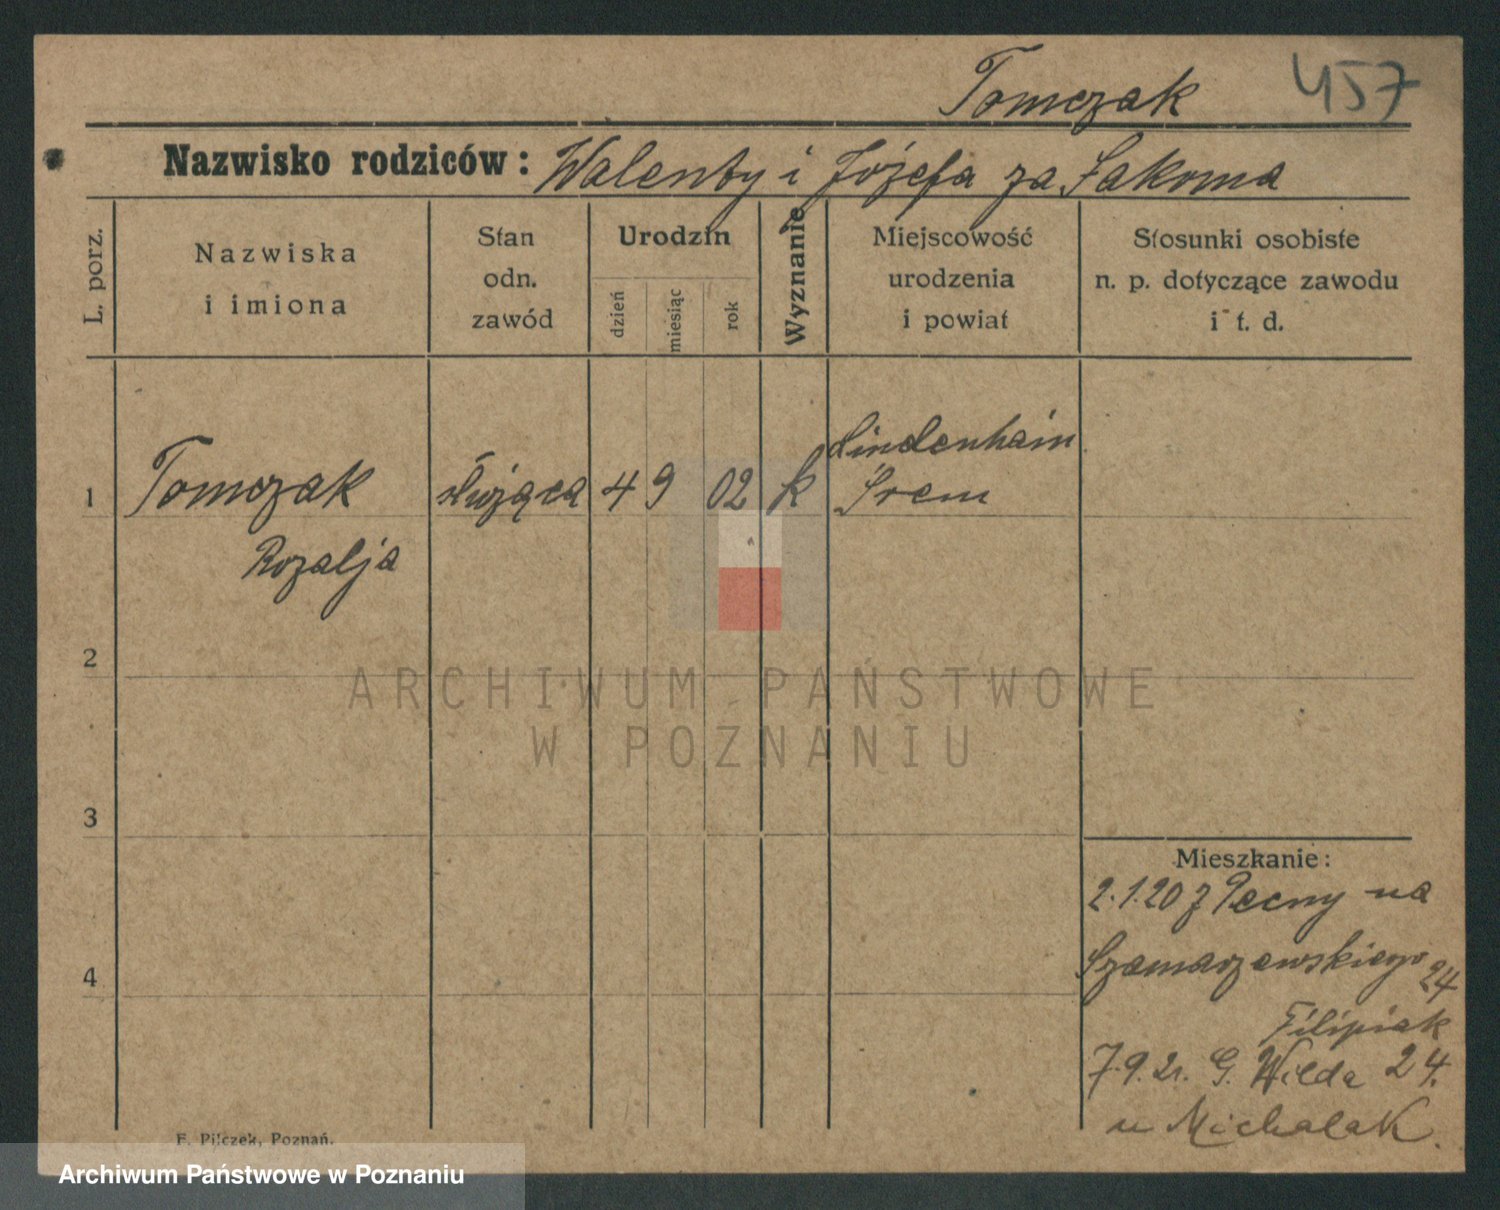 Tomczak 457
Nazwisko rodziców: Walenty i Józefa za Łakoma
L. porz.
Nazwiska
i imiona
Stan
odn.
zawód
Urodzin
dzień
miesiąc
rok
Wyznanie
Miejscowość
urodzenia
i powiat
Stosunki osobiste
n. p. dotyczące zawodu
i t. d.
Lindenhain
1 Tomczak służąca 4 9 02 k Śrem
Rozalja
2
ARCHIWUM PAŃSTWOWE
W POZNANIU
3
Mieszkanie:
2.1.20 z Pecny na
4 Szamarzewskiego 24
Filipiak
7.9.21. G. Wilda 24.
u Michalak.
F. Pilczek, Poznań.
Archiwum Państwowe w Poznaniu